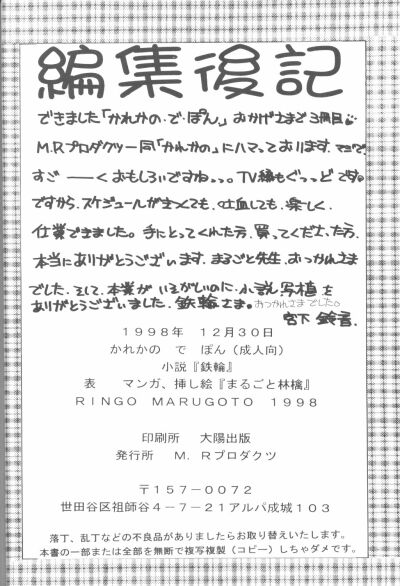 編集後記
できました「かれかの・で・ぽん」おかげさまで3冊目
M.Rプロダクツ一同「かれかの」にハマっております。マジで
すごーーくおもしろいですね。。。TV編もぐっっどです。
ですから、スケジュールがきつくても、吐血しても、楽しく
仕業できました。手にとってくれた方、買ってくださった方、
本当にありがとうございます。まるごと先生、おつかれさま
でした。そして、本業がいそがしいのに、小説、写植を
ありがとうございました。鉄輪さま。おつかれさまでした。
宮下 鈴音.
1998年 12月30日
かれかの で ぽん(成人向)
小説『鉄輪』
表 マンガ、挿し絵『まるごと林檎』
RINGO MARUGOTO 1998
印刷所 大陽出版
発行所 M.Rプロダクツ
〒157-0072
世田谷区祖師谷4-7-21アルパ成城103
落丁、乱丁などの不良品がありましたらお取り替えいたします。
本書の一部または全部を無断で複写複製(コピー)しちゃダメです。